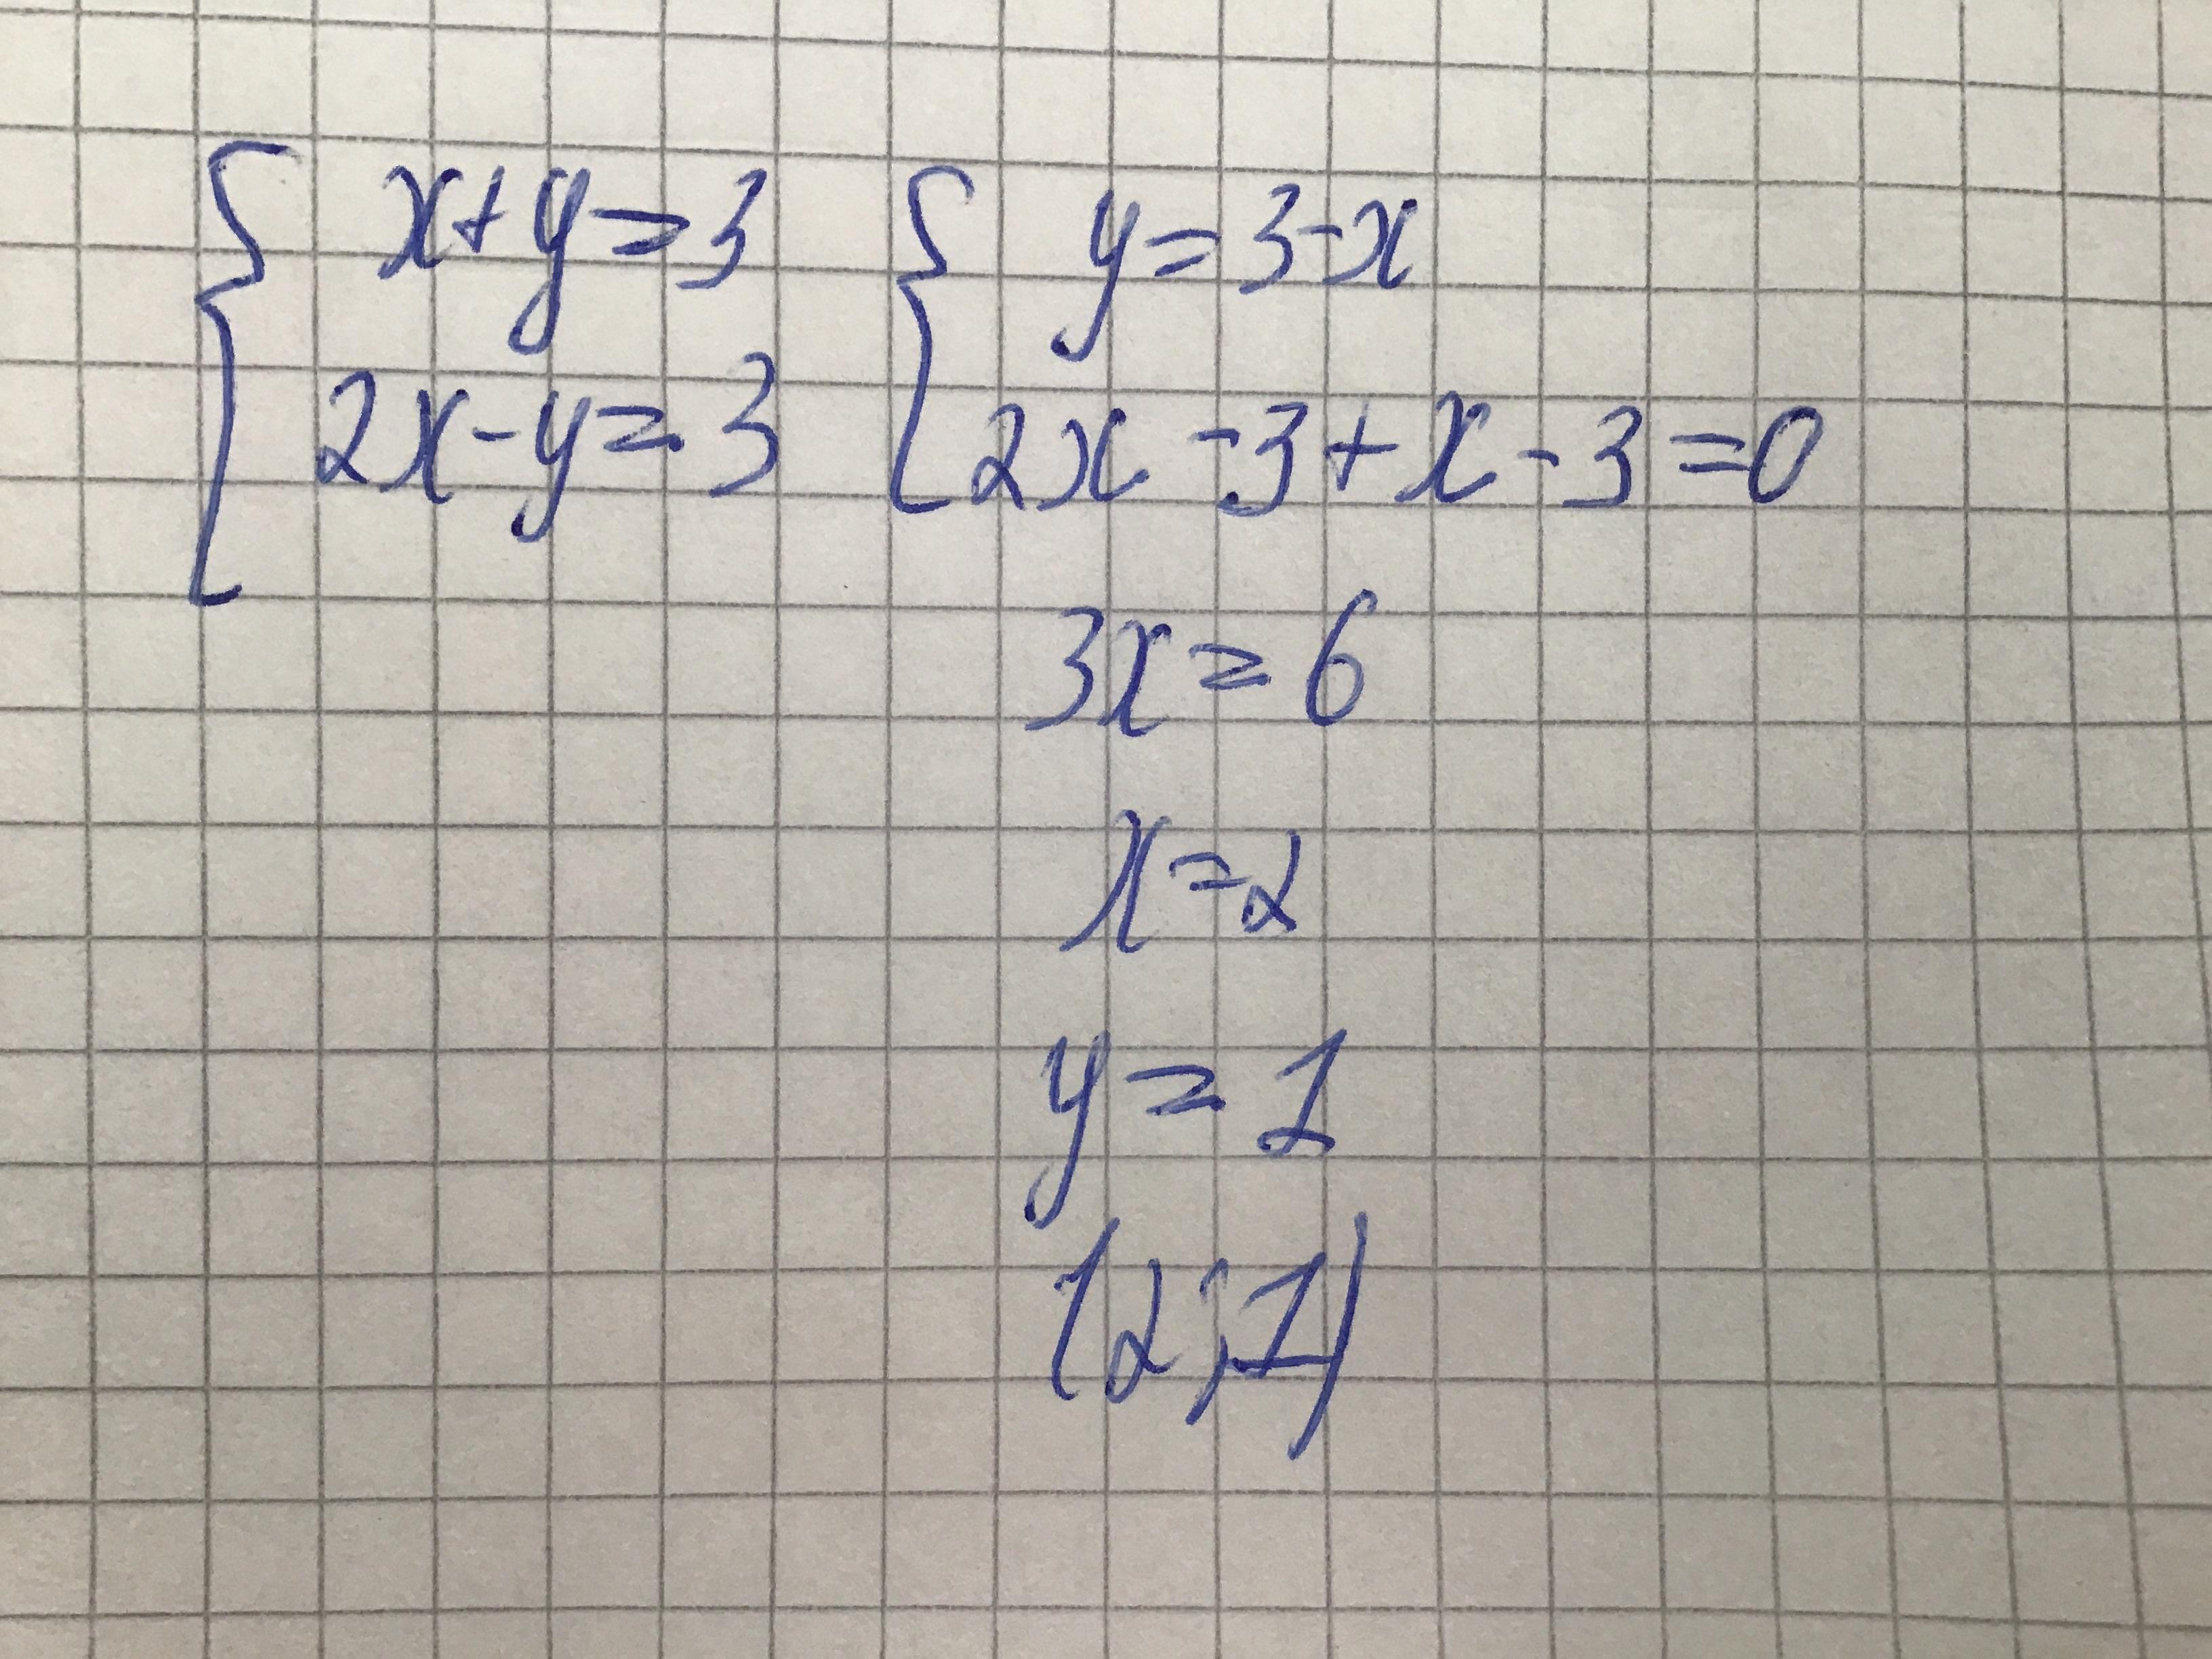 { x+y=3 { y=3-x
2x-y=3 2x-3+x-3=0
3x=6
x=2
y=1
(2;1)